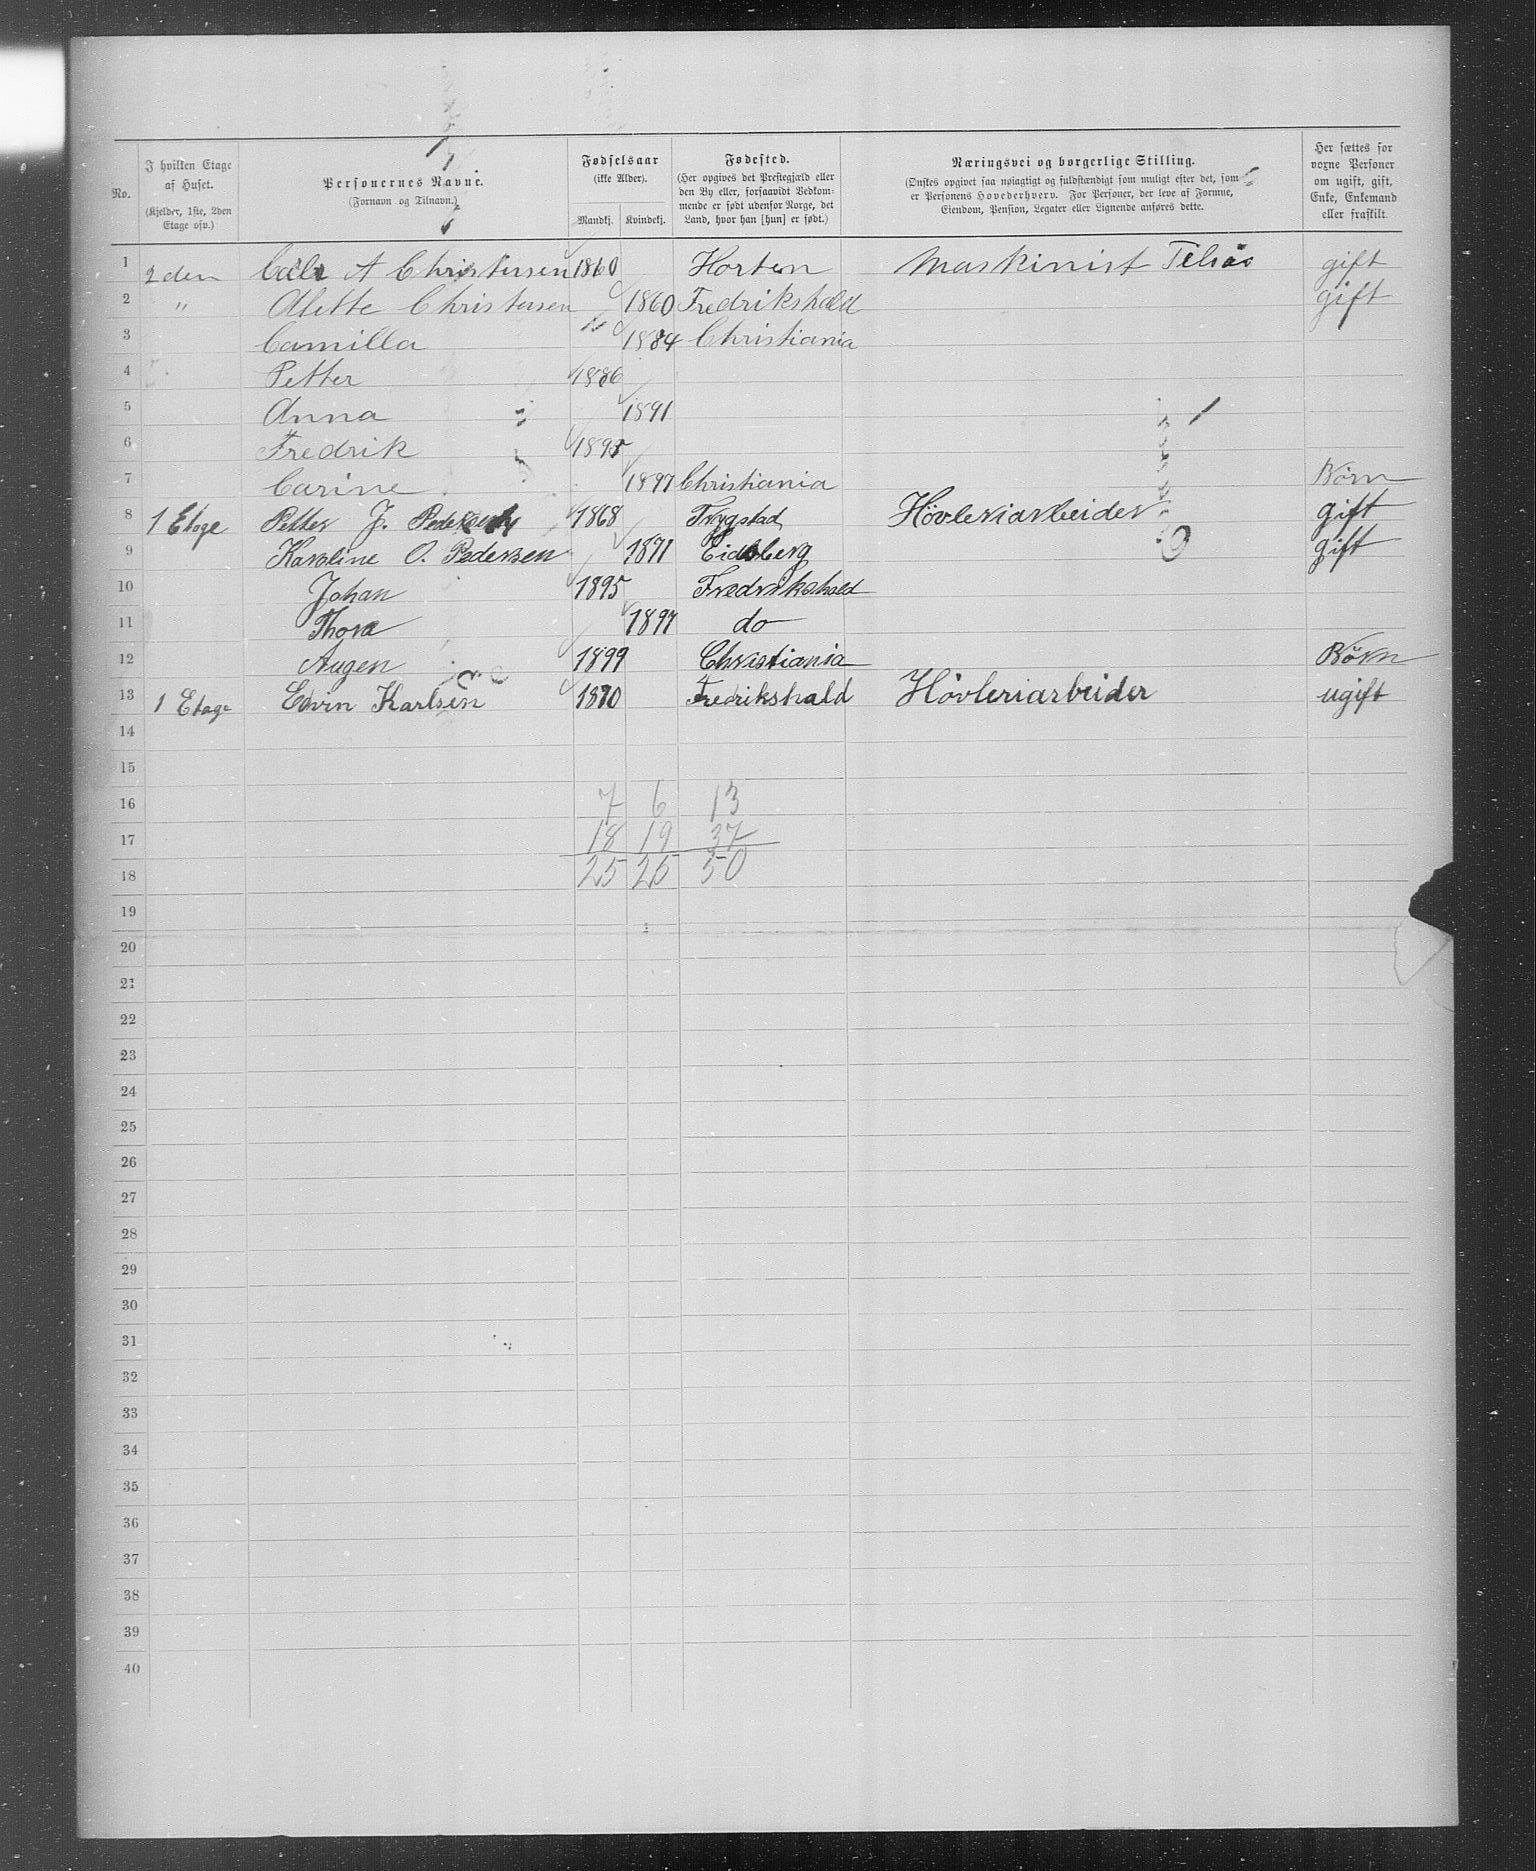 No.
I hvilken Etage af Huset.
(Kjelder, 1ste, 2den Etage osv.)
Personernes Navne.
(Fornavn og Tilnavn.)
Fødselsaar
(ikke Alder).
Mandkj. Kvindekj.
Fødested.
(Her opgives det Prestegjæld eller
den By eller, forsaavidt Vedkom-
mende er født udenfor Norge, det
Land, hvor han [hun] er født.)
Næringsvei og borgerlige Stilling.
(Ønskes opgivet saa nøiagtigt og fuldstændigt som muligt efter det, som
er Personens Hovederhverv. For Personer, der leve af Formue,
Eiendom, Pension, Legater eller Lignende anføres dette.
Her sættes for
voxne Personer
om ugift, gift,
Enke, Enkemand
eller fraskilt.
1 2den A Christensen 1860 Horten Maskinist gift
2 " Alette Christensen 1860 Fredrikshald gift
3 Camilla 1884 Christiania
4 Petter 1886
5 Anna 1891
6 Fredrik 1895
7 Carine 1897 Christiania Börn
8 1 Etage Petter J. Pedersen 1868 Trygstad Hövleriarbeider gift
9 Karoline O. Pedersen 1871 Eidsberg gift
10 Johan 1895 Fredrikshald
11 Thora 1897 do
12 Augen 1899 Christiania Börn
13 1 Etage Edvin Karlsen 1870 Fredrikshald Hövleriarbeider ugift
14
15
16 7 6 13
17 18 19 37
18 25 25 50
19
20
21
22
23
24
25
26
27
28
29
30
31
32
33
34
35
36
37
38
39
40